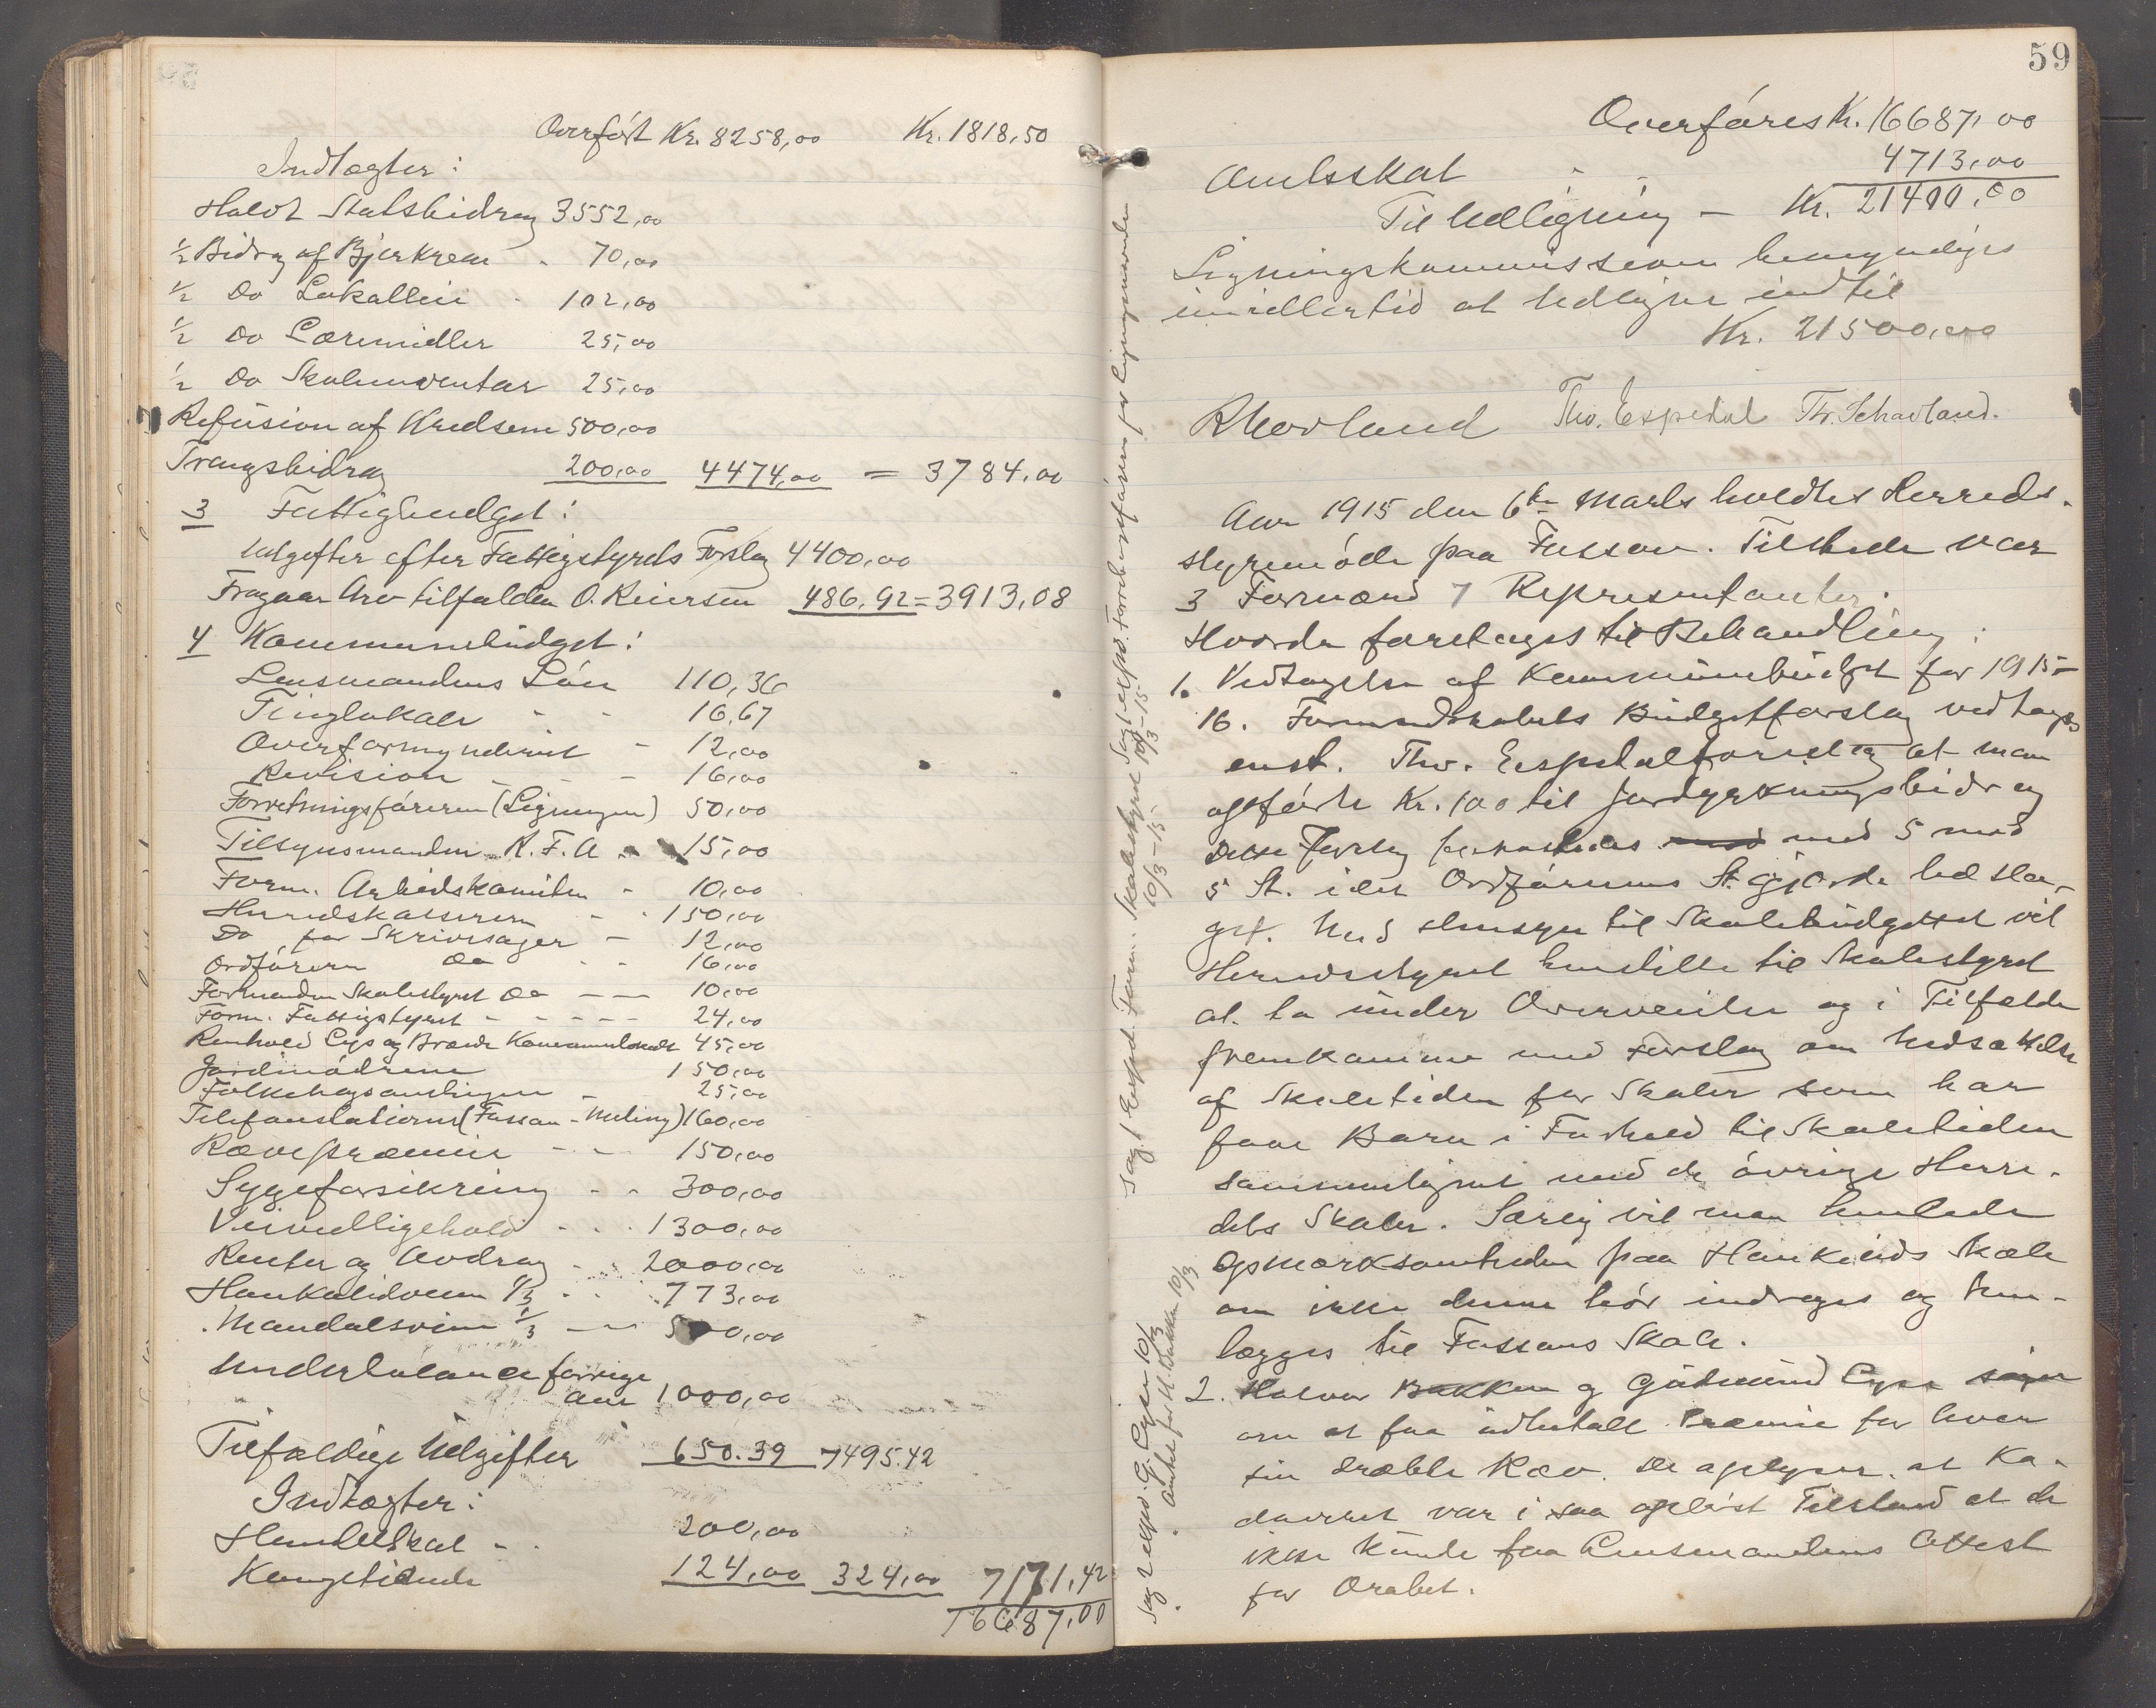 Overført Kr. 8258,00 Kr. 1818,50
Indtægter:
Halvt Statsbidrag 3552,00
1/2 Bidrag af Bjerkrem - 70,00
1/2 Do Lokalleie - 102,00
1/2 Do Læremidler 25,00
1/2 Do Skoleinventar 25,00
Refusion af Kredsene 500,00
Trangsbidrag 200,00 4474,00 = 3784,00
3 Fattigbudget:
Udgifter efter Fattigstyrets Forslag 4400,00
Fragaar Arv tilfalden O. Reiersen 486,92 = 3913,08
4 Kommunebudget:
Lensmandens Løn 110,36
Tinglokale - - 16,67
Overformynderiet - 12,00
Revision - - - 16,00
Forretningsføreren (Ligningen) 50,00
Tilsynsmanden K.F.A - 15,00
Form. Arbeidskomiten - 10,00
Herredskassereren - - 150,00
Do for Skrivesager - 12,00
Ordføreren Do - - 16,00
Formanden Skolestyret Do - - 10,00
Form. Fattigstyret - - - - - 24,00
Renhold Lys og Brænde Kommunelokale 45,00
Jordmødrene 150,00
Folkebogsamlingen - 25,00
Telefonstationer (Fussan - Meling) 160,00
Rævepræmie - - - 150,00
Sygeforsikring - - 300,00
Veivedligehold - - - 1300,00
Renter og Avdrag - 2000,00
Haukalidveien 1/3 - - 773,00
Mandalsveien 1/3 - - 500,00
Underbalance forrige
Aar 1000,00
Tilfældige Udgifter 650.39 7495.42
Indtægter:
Handelskat - - 200,00
Kongetiende 124,00 324,00 7171,42
16687,00
59
Overføres Kr. 16687,00
Amtsskat - - 4713,00
Til Udligning - Kr. 21400,00
Ligningskommissionen bemyndiges
imidlertid at Udligne indtil
Kr. 21500,00
R Hovland Tho. Espedal Th. Schavland.
Aar 1915 den 6te Marts holdtes Herreds-
styremøde paa Fussan. Tilstede var
3 Formænd 7 Repræsentanter.
Hvorda foretoges til Behandling:
1. Vedtagelse af Kommunebudget for 1915-
16. Formandskabets Budgetforslag vedtages
enst. Tho. Espedal foreslog at man
opførte Kr. 100 til Jordyrkningsbidrag
Dette Forslag forkastedes med med 5 mod
5 St. idet Ordførerens St. gjorde Udslag-
get. Med Hensyn til Skolebudgettet vil
Herredsstyret henstille til Skolestyret
at ta under Overveielse og i Tilfælde
fremkomme med Forslag om Nedsættelse
af Skoletiden for Skoler som har
faae Barn i Forhold til Skoletiden
sammenlignet med de øvrige Herre-
dets Skoler. Særlig vil man henlede
Opmærksomheden paa Haukalids Skole
om ikke denne bør inddrages og hen-
lægges til Fussans Skole.
2. Halvor Bakken og Gudmund Lyse søger
om at faa udbetalt Præmie for hver
sin dræbte Ræv. De oplyser, at Ka-
daveret var i saa opløst Tilstand at de
ikke kunde faa Lensmandens Attest
for Drabet.
Sag 1 Exped. Form. Skolestyret 10/3-15
Sag 1 exped. Forretningsføreren for Ligningsvæsenden 10/3-15
Sag 2 exped. G. Lyse 10/3
Anke for H. Bakken 10/3